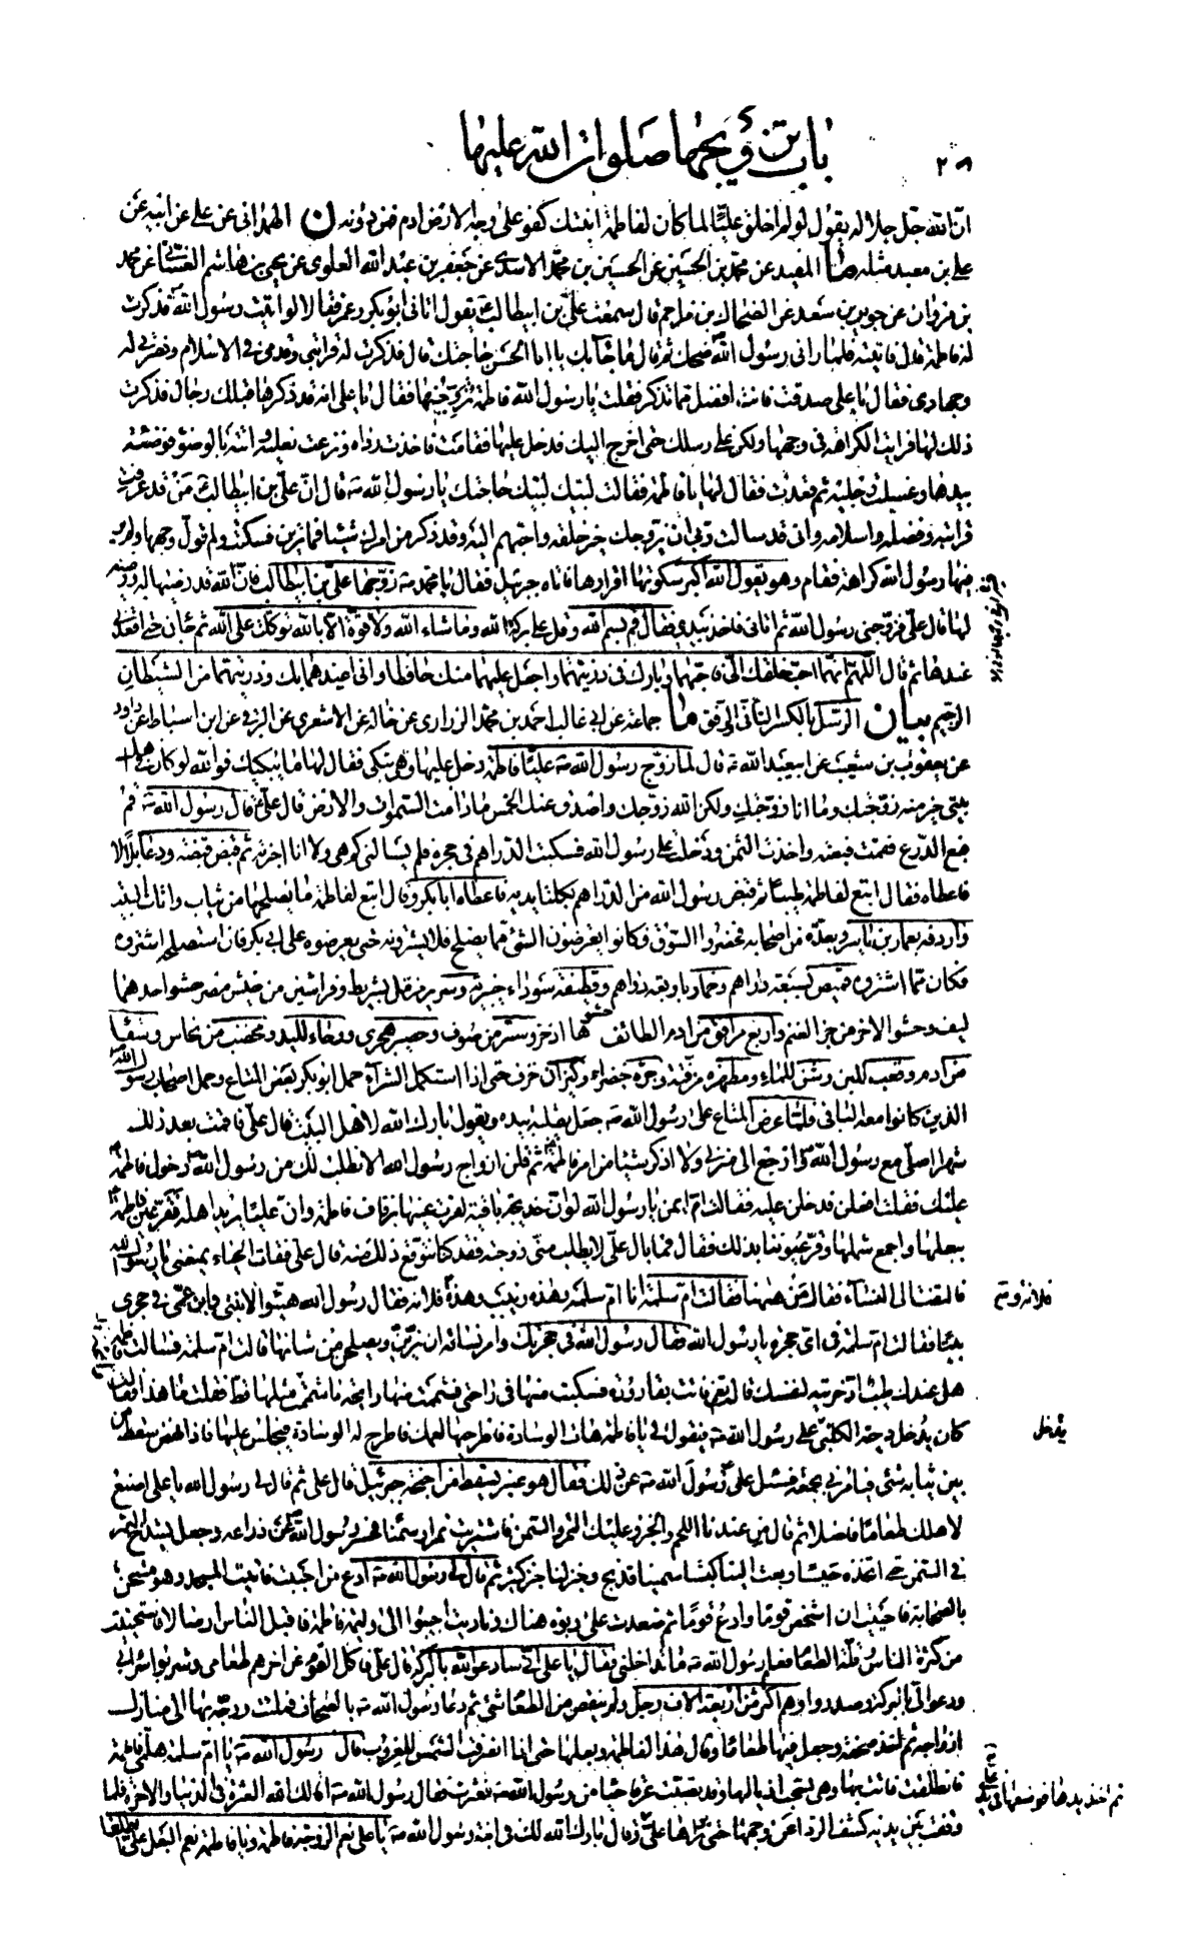 باب تزويجها صلوات الله عليها
٢٨
ان الله جل جلاله يقول لو لم اخلق عليا لما كان لفاطمة ابنتك كفو على وجه الارض ادم فمن دونه ن الهمداني عن علي عن ابيه عن
علي بن معبد مثله ما المفيد عن محمد بن الحسين عن الحسين بن محمد الاسدي عن جعفر بن عبد الله العلوي عن يحيى بن هاشم الغساني عن محمد
بن مروان عن جويبر بن سعد عن الضحاك بن مزاحم قال سمعت علي بن ابيطالب يقول اتاني ابو بكر وعمر فقالا لو اتيت رسول الله فذكرت
له فاطمة قال فاتيته فلما راني رسول الله ضحك ثم قال ما جاء بك يا ابا الحسن حاجتك قال فذكرت له قرابتي وقدمي في الاسلام ونصرتي له
وجهادي فقال يا علي صدقت فانت افضل مما تذكر فقلت يا رسول الله فاطمة تزوجنيها فقال يا علي انه قد ذكرها قبلك رجال فذكرت
ذلك لها فرايت الكراهة في وجهها ولكن على رسلك حتى اخرج اليك فدخل عليها فقامت فاخذت رداه ونزعت نعليه واتته بالوضوء فوضئته
بيدها وغسلت رجليه ثم قعدت فقال لها يا فاطمة فقالت لبيك لبيك حاجتك يا رسول الله قال ان علي بن ابيطالب من قد عرفت
قرابته وفضله واسلامه واني قد سالت ربي ان يزوجك خير خلقه واحبهم اليه وقد ذكر من امرك شيئا فما ترين فسكتت ولم تول وجهها ولم ير
فيها رسول الله كراهة فقام وهو يقول الله اكبر سكوتها اقرارها فاتاه جبرئيل فقال يا محمد زوجها علي بن ابيطالب فان الله قد رضيها له ورضيه
لها قال علي فزوجني رسول الله ثم اتاني فاخذ بيدي فقال قم بسم الله وقل على بركة الله وما شاء الله ولا قوة الا بالله توكلت على الله ثم جاءني حتى اقعدني
عندها ثم قال اللهم انهما احب خلقك الي فاحبهما وبارك في ذريتهما واجعل عليهما منك حافظا واني اعيذهما بك وذريتهما من الشيطان
الرجيم بيان الرسل بالكسر التاني والرفق ما جماعة عن ابي غالب احمد بن محمد الزراري عن خاله عن الاشعري عن البرقي عن ابن اسباط عن داود
عن يعقوب بن شعيب عن ابيعبد الله قال لما زوج رسول الله عليا فاطمة دخل عليها وهي تبكي فقال لها ما يبكيك فوالله لو كان في اهل
بيتي خير منه زوجتك وما انا زوجتك ولكن الله زوجك واصدق عنك الخمس ما دامت السموات والارض قال علي قال رسول الله قم
فبع الدرع فقمت فبعته واخذت الثمن ودخلت على رسول الله فسكبت الدراهم في حجره فلم يسالني كم هي ولا انا اخبرته ثم قبض قبضة ودعا بلالا
فاعطاه فقال ابتع لفاطمة طيبا ثم قبض رسول الله من الدراهم بكلتا يديه فاعطاه ابا بكر وقال ابتع لفاطمة ما يصلحها من ثياب واثاث البيت
واردفه بعمار بن ياسر وبعدة من اصحابه فحضروا السوق فكانوا يعرضون الشيء مما يصلح فلا يشترونه حتى يعرضوه على ابي بكر فان استصلحه اشتروه
فكان مما اشتروه قميص بسبعة دراهم وخمار باربعة دراهم وقطيفة سوداء خيبرية وسرير مزمل بشريط وفراشين من خيش مصر حشو احدهما
ليف وحشو الاخر من جز الغنم واربع مرافق من ادم الطائف حشوها اذخر وستر من صوف وحصير هجري ورحاء لليد ومخضب من نحاس وسقا
من ادم وقعب للبن وشن للماء ومطهرة مزفتة وجرة خضراء وكيزان خزف حتى اذا استكمل الشراء حمل ابو بكر بعض المتاع وحمل اصحاب رسول الله
الذين كانوا معه الباقي فلما عرض المتاع على رسول الله جعل يقلبه بيده ويقول بارك الله لاهل البيت قال علي فاقمت بعد ذلك
شهرا اصلي مع رسول الله وارجع الى منزلي ولا اذكر شيئا من امر فاطمة ثم قلن ازواج رسول الله الا نطلب لك من رسول الله دخول فاطمة
عليك فقلت افعلن فدخلن عليه فقالت ام ايمن يا رسول الله لو ان خديجة باقية لقرت عينها بزفاف فاطمة وان عليا يريد اهله فقر عين فاطمة
ببعلها واجمع شملها وقر عيوننا بذلك فقال فما بال علي لا يطلب مني زوجته فقد كنا نتوقع ذلك منه قال علي فقلت الحياء يمنعني يا رسول الله
فالتفت الى النساء فقال من ههنا فقالت ام سلمة انا ام سلمة وهذه زينب وهذه فلانة فقال رسول الله هيئوا لابنتي وابن عمي في حجري
فلانة وتم
بيتا فقالت ام سلمة في اي حجرة يا رسول الله فقال رسول الله في حجرتك وامر نسائه ان يزين ويصلحن من شانها قالت ام سلمة فسالت فاطمة
هل عندك طيب ادخرتيه لنفسك قالت نعم فاتت بقارورة فسكبت منها في راحتي فشممت منها رائحة ما شممت مثلها قط فقلت ما هذا فقالت
كان يدخل دحية الكلبي على رسول الله فيقول لي يا فاطمة هات الوسادة فاطرحيها لعمك فاطرح له الوسادة فيجلس عليها فاذا نهض سقط من
يدخل
بين ثيابه شيء فيامرني بجمعه فسئل علي رسول الله عن ذلك فقال هو عنبر يسقط من اجنحة جبرئيل قال علي ثم قال لي رسول الله يا علي اصنع
لاهلك طعاما فاضلا ثم قال من عندنا اللحم والخبز وعليك التمر والسمن فاشتريت تمرا وسمنا فحسر رسول الله عن ذراعه وجعل يشدخ التمر
في السمن حتى اتخذه حيسا وبعث الينا كبشا سمينا فذبح وخبز لنا خبز كثير ثم قال لي رسول الله ادع من احببت فاتيت المسجد وهو مشحن
بالصحابة فاحييت ان اشخص قوما وادع قوما ثم صعدت على ربوة هناك وناديت اجيبوا الى وليمة فاطمة فاقبل الناس ارسالا فاستحييت
من كثرة الناس وقلة الطعام فعلم رسول الله ما تداخلني فقال يا علي اني سادعو الله بالبركة قال علي فاكل القوم عن اخرهم طعامي وشربوا شرابي
ودعوا لي بالبركة وصدروا وهم اكثر من اربعة الاف رجل ولم ينقص من الطعام شيء ثم دعا رسول الله بالصحاف فملئت ووجه بها الى منازل
ازواجه ثم اخذ صحفة وجعل فيها طعاما وقال هذا لفاطمة وبعلها حتى اذا انصرفت الشمس للغروب قال رسول الله يا ام سلمة هلمي فاطمة
فانطلقت فاتت بها وهي تسحب اذيالها وقد تصببت عرقا حياء من رسول الله فعثرت فقال رسول الله اقالك الله العثرة في الدنيا والاخرة فلما
ثم اخذ يدها فوضعها في يد علي
وقفت بين يديه كشف الرداء عن وجهها حتى راها علي وقال بارك الله لك في ابنة رسول الله يا علي نعم الزوجة فاطمة ويا فاطمة نعم البعل علي